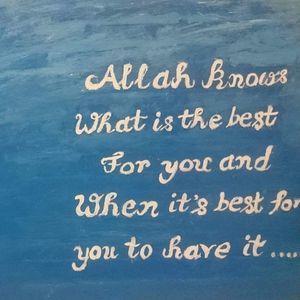 Allah knows
What is the best
For you and
When it's best for
you to have it ....